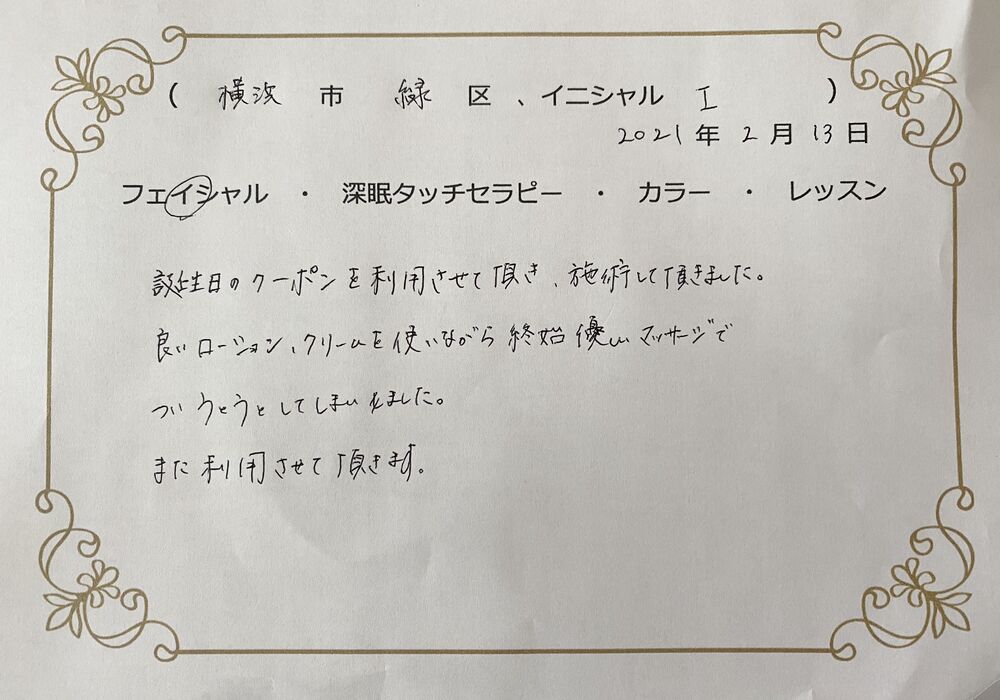 ( 横浜 市 緑 区 、イニシャル I )
2021 年 2 月 13 日
フェイシャル ・ 深眠タッチセラピー ・ カラー ・ レッスン
誕生日のクーポンを利用させて頂き、施術して頂きました。
良いローション、クリームを使いながら終始優しいマッサージで
ついうとうとしてしまいました。
また利用させて頂きます。